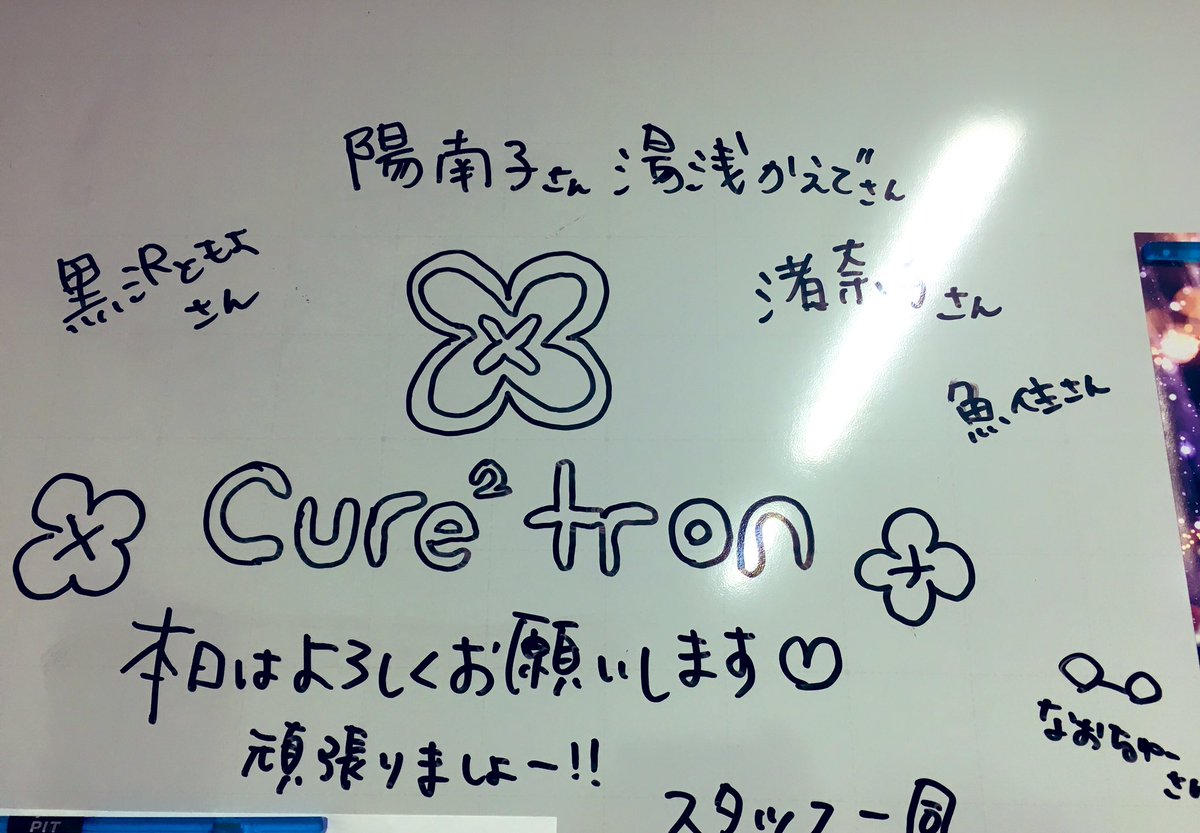 陽南子さん 湯浅かえでさん
黒沢ともよ
さん
渚 奈 さん
魚佳さん
Cure² tron
本日はよろしくお願いします♡
頑張りましょー!!
なおちゃー
さん
スタッフ一同
PIT